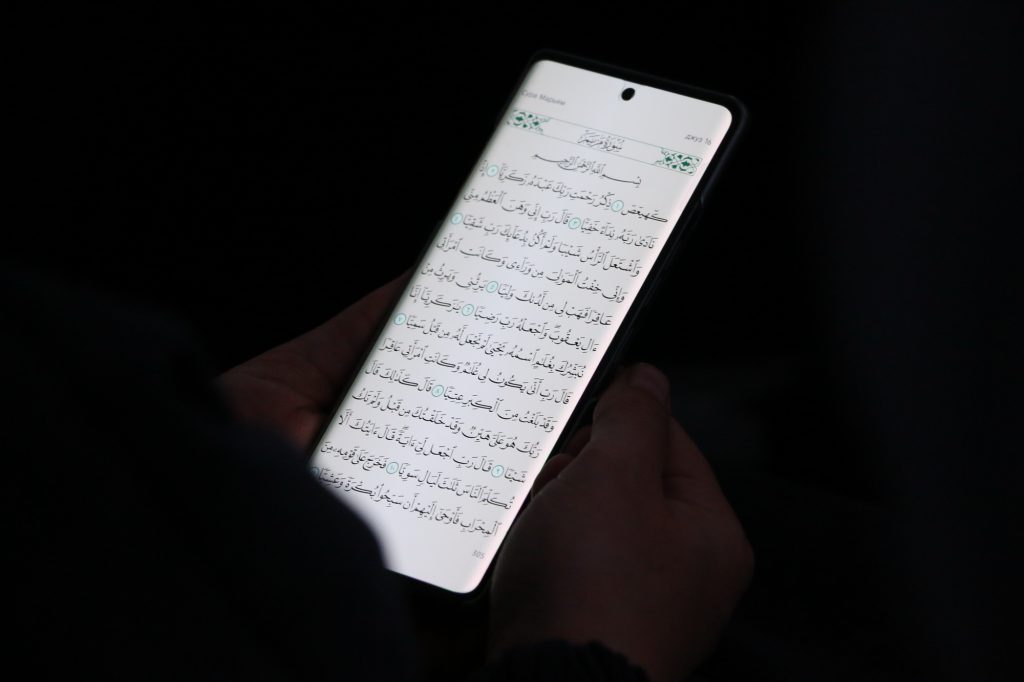 Сура Марьям
джуз 16
سُورَةُ مَرْيَمَ
بِسْمِ ٱللَّهِ ٱلرَّحْمَٰنِ ٱلرَّحِيمِ
كٓهيعٓصٓ ١ ذِكْرُ رَحْمَتِ رَبِّكَ عَبْدَهُۥ زَكَرِيَّآ ٢ إِذْ
نَادَىٰ رَبَّهُۥ نِدَآءً خَفِيًّا ٣ قَالَ رَبِّ إِنِّي وَهَنَ ٱلْعَظْمُ مِنِّي
وَٱشْتَعَلَ ٱلرَّأْسُ شَيْبًا وَلَمْ أَكُنۢ بِدُعَآئِكَ رَبِّ شَقِيًّا ٤
وَإِنِّي خِفْتُ ٱلْمَوَٰلِيَ مِن وَرَآءِي وَكَانَتِ ٱمْرَأَتِي
عَاقِرًا فَهَبْ لِي مِن لَّدُنكَ وَلِيًّا ٥ يَرِثُنِي وَيَرِثُ مِنْ
ءَالِ يَعْقُوبَۖ وَٱجْعَلْهُ رَبِّ رَضِيًّا ٦ يَٰزَكَرِيَّآ إِنَّا
نُبَشِّرُكَ بِغُلَٰمٍ ٱسْمُهُۥ يَحْيَىٰ لَمْ نَجْعَل لَّهُۥ مِن قَبْلُ سَمِيًّا ٧
قَالَ رَبِّ أَنَّىٰ يَكُونُ لِي غُلَٰمٌ وَكَانَتِ ٱمْرَأَتِي عَاقِرًا
وَقَدْ بَلَغْتُ مِنَ ٱلْكِبَرِ عِتِيًّا ٨ قَالَ كَذَٰلِكَ قَالَ
رَبُّكَ هُوَ عَلَيَّ هَيِّنٌ وَقَدْ خَلَقْتُكَ مِن قَبْلُ وَلَمْ تَكُ
شَيْـًٔا ٩ قَالَ رَبِّ ٱجْعَل لِّيٓ ءَايَةًۖ قَالَ ءَايَتُكَ أَلَّا
تُكَلِّمَ ٱلنَّاسَ ثَلَٰثَ لَيَالٍ سَوِيًّا ١٠ فَخَرَجَ عَلَىٰ قَوْمِهِۦ مِنَ
ٱلْمِحْرَابِ فَأَوْحَىٰٓ إِلَيْهِمْ أَن سَبِّحُوا۟ بُكْرَةً وَعَشِيًّا ١١
305